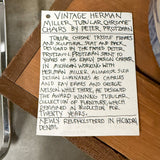 VINTAGE HERMAN
MILLER TUBULAR CHROME
CHAIRS BY PETER PROTZMAN
TUBULAR CHROME TRESTLE FRAMES
AND SCULPTURAL SEAT AND BACK,
DESIGNED BY THE FAMED PETER
PROTZMAN. PROTZMAN SPENT 20
YEARS OF HIS EARLY DESIGN CAREER
IN MICHIGAN WORKING WITH
HERMAN MILLER, ALONGSIDE SUCH
DESIGN LUMINARIES AS CHARLES
AND RAY EAMES AND GEORGE
NELSON. WHILE THERE, HE DESIGNED
THE AWARD WINNING TUBULAR
COLLECTION OF FURNITURE, WHICH
REMAINED IN PRODUCTION FOR
TWENTY YEARS.
NEWLY REUPHOLSTERED IN